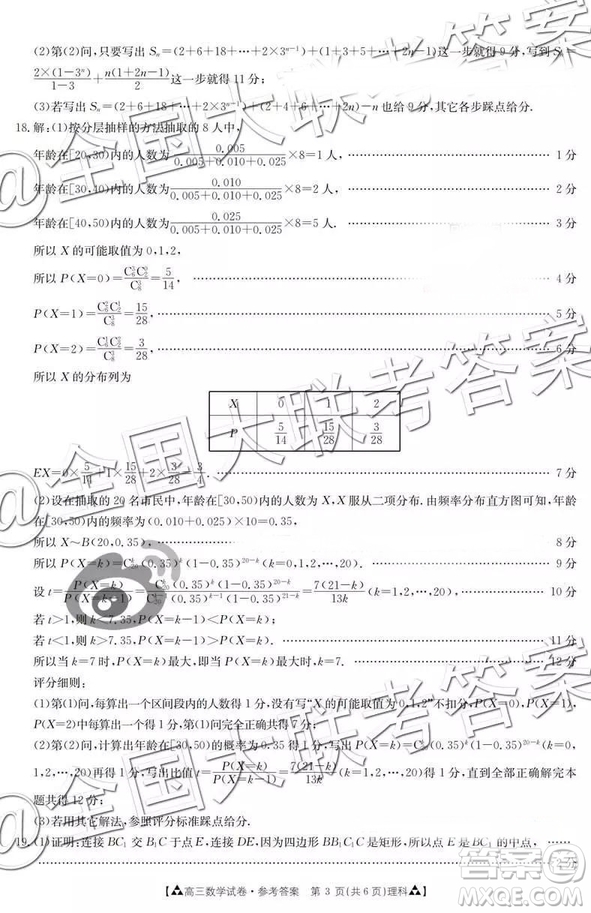 (2)第(2)问,只要写出 Sₙ=(2+6+18+…+2×3ⁿ⁻¹)+(1+3+5+…+2n-1)这一步就得 9 分,写到 Sₙ=
2×(1-3ⁿ)/1-3+n(1+2n-1)/2这一步就得 11 分;
(3)若写出 Sₙ=(2+6+18+…+2×3ⁿ⁻¹)+(2+4+6+…+2n)-n 也给 9 分.其它各步踩点给分.
18.解:(1)按分层抽样的方法抽取的 8 人中,
年龄在[20,30)内的人数为0.005/0.005+0.010+0.025×8=1 人, 1 分
年龄在[30,40)内的人数为0.010/0.005+0.010+0.025×8=2 人, 2 分
年龄在[40,50)内的人数为0.025/0.005+0.010+0.025×8=5 人. 3 分
所以 X 的可能取值为 0,1,2,
所以 P(X=0)=C₆³C₂⁰/C₈³=5/14, 4 分
P(X=1)=C₆²C₂¹/C₈³=15/28, 5 分
P(X=2)=C₆¹C₂²/C₈³=3/28, 6 分
所以 X 的分布列为
X 0 1 2
P 5/14 15/28 3/28
EX=0×5/14+1×15/28+2×3/28=3/4. 7 分
(2)设在抽取的 20 名市民中,年龄在[30,50)内的人数为 X,X 服从二项分布.由频率分布直方图可知,年龄
在[30,50)内的频率为(0.010+0.025)×10=0.35,
所以 X~B(20,0.35), 8 分
所以 P(X=k)=C₂₀ᵏ(0.35)ᵏ(1-0.35)²⁰⁻ᵏ(k=0,1,2,…,20). 9 分
设 t=P(X=k)/P(X=k-1)=C₂₀ᵏ(0.35)ᵏ(1-0.35)²⁰⁻ᵏ/C₂₀ᵏ⁻¹(0.35)ᵏ⁻¹(1-0.35)²¹⁻ᵏ=7(21-k)/13k(k=1,2,…,20), 10 分
若 t>1,则 k<7.35,P(X=k-1)<P(X=k);
若 t<1,则 k>7.35,P(X=k-1)>P(X=k). 11 分
所以当 k=7 时,P(X=k)最大,即当 P(X=k)最大时,k=7. 12 分
评分细则:
(1)第(1)问,每算出一个区间段内的人数得 1 分,没有写“X 的可能取值为 0,1,2”不扣分,P(X=0),P(X=1),
P(X=2)中每算出一个得 1 分,第(1)问完全正确共得 7 分;
(2)第(2)问,计算出年龄在[30,50)的概率为 0.35 得 1 分,写出 P(X=k)=C₂₀ᵏ(0.35)ᵏ(1-0.35)²⁰⁻ᵏ(k=0,
1,2,…,20)再得 1 分,写出比值 t=P(X=k)/P(X=k-1)=7(21-k)/13k(k=1,2,…,20)得 1 分,整道题完全正确本
题共得 12 分;
(3)若用其它解法,参照评分标准踩点给分.
19.(1)证明:连接 BC₁ 交 B₁C 于点 E,连接 DE,因为四边形 BB₁C₁C 是矩形,所以点 E 是 BC₁ 的中点,
2 分
【高三数学试卷·参考答案 第 3 页(共 6 页)理科】
@全国大联考答案
@全国大联考答案